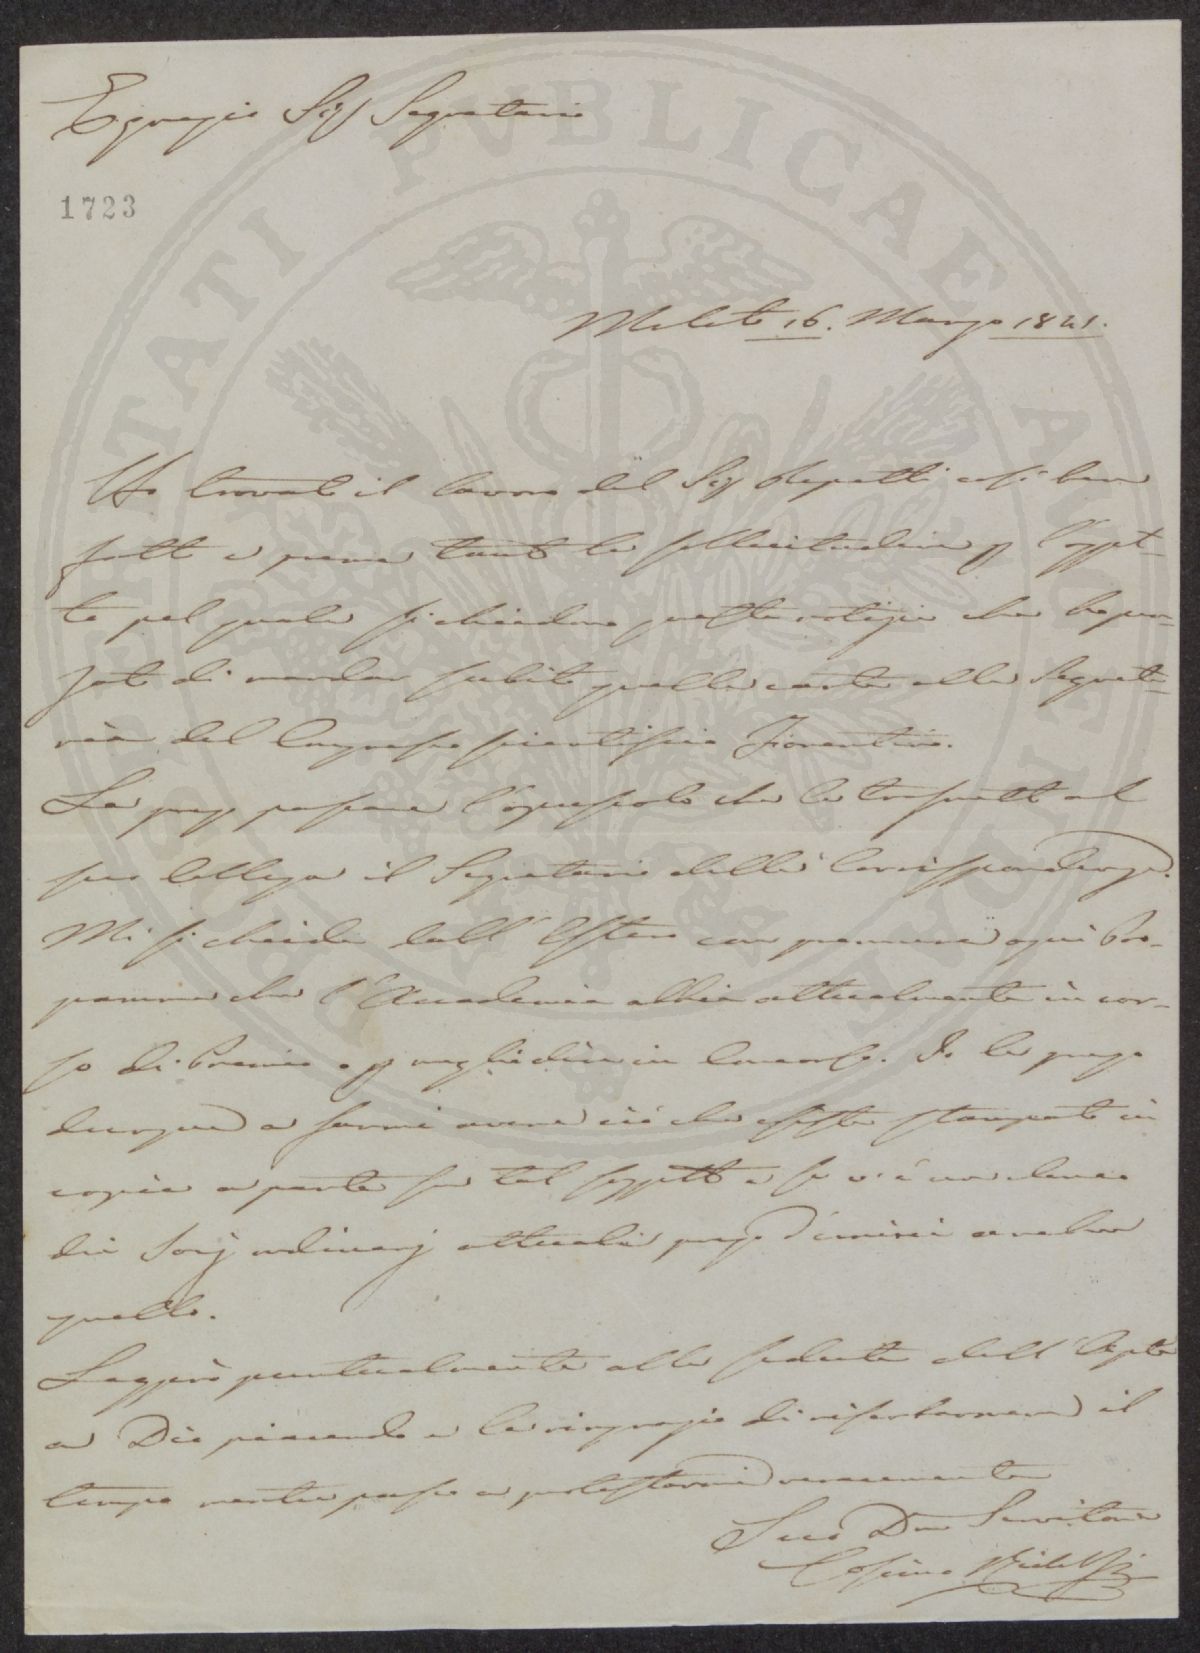 Egregio Sig Segretario
1723
PROSPERITATI PVBLICAE AVGENDAE
Meleto 16. Marzo 1841.
Ho trovato il lavoro del Sig Repetti così ben
fatto e preme tanto la sollecitudine p l'oggetto
pel quale si chiedono queste notizie che ho pen-
sato di mandar subito quelle carte alla Segrete-
ria del Congresso scientifico Fiorentino.
La prego passare l'opuscolo che le trasmetto al
suo Collega il Segretario delle Corrispondenze.
Mi si chiede dall' Estero con premura ogni Pro-
gramma che l'Accademia abbia attualmente in cor-
so di Premio o p meglio dire in Concorso. Io la prego
dunque a farmi avere ciò che esiste stampato in
copia a parte su tal soggetto e se v'è un elenco
dei Socj ordinarj attuali prego d'unirci anche
quello.
Leggerò puntualmente alla seduta dell'
a Dio piacendo e la ringrazio di riserbarmene il
tempo mentre passo a protestarmi veracemente
Suo Dev Servitore
Cosimo Ridolfi